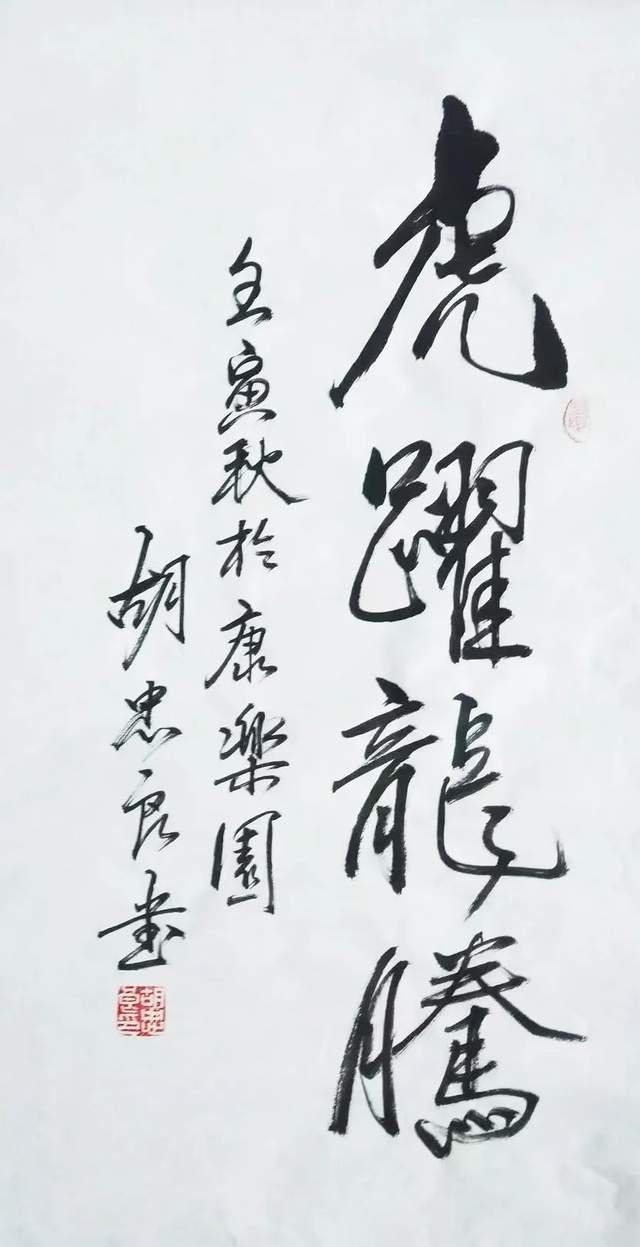 虎躍龍騰
壬寅秋於康樂園
胡忠良書
胡忠良印